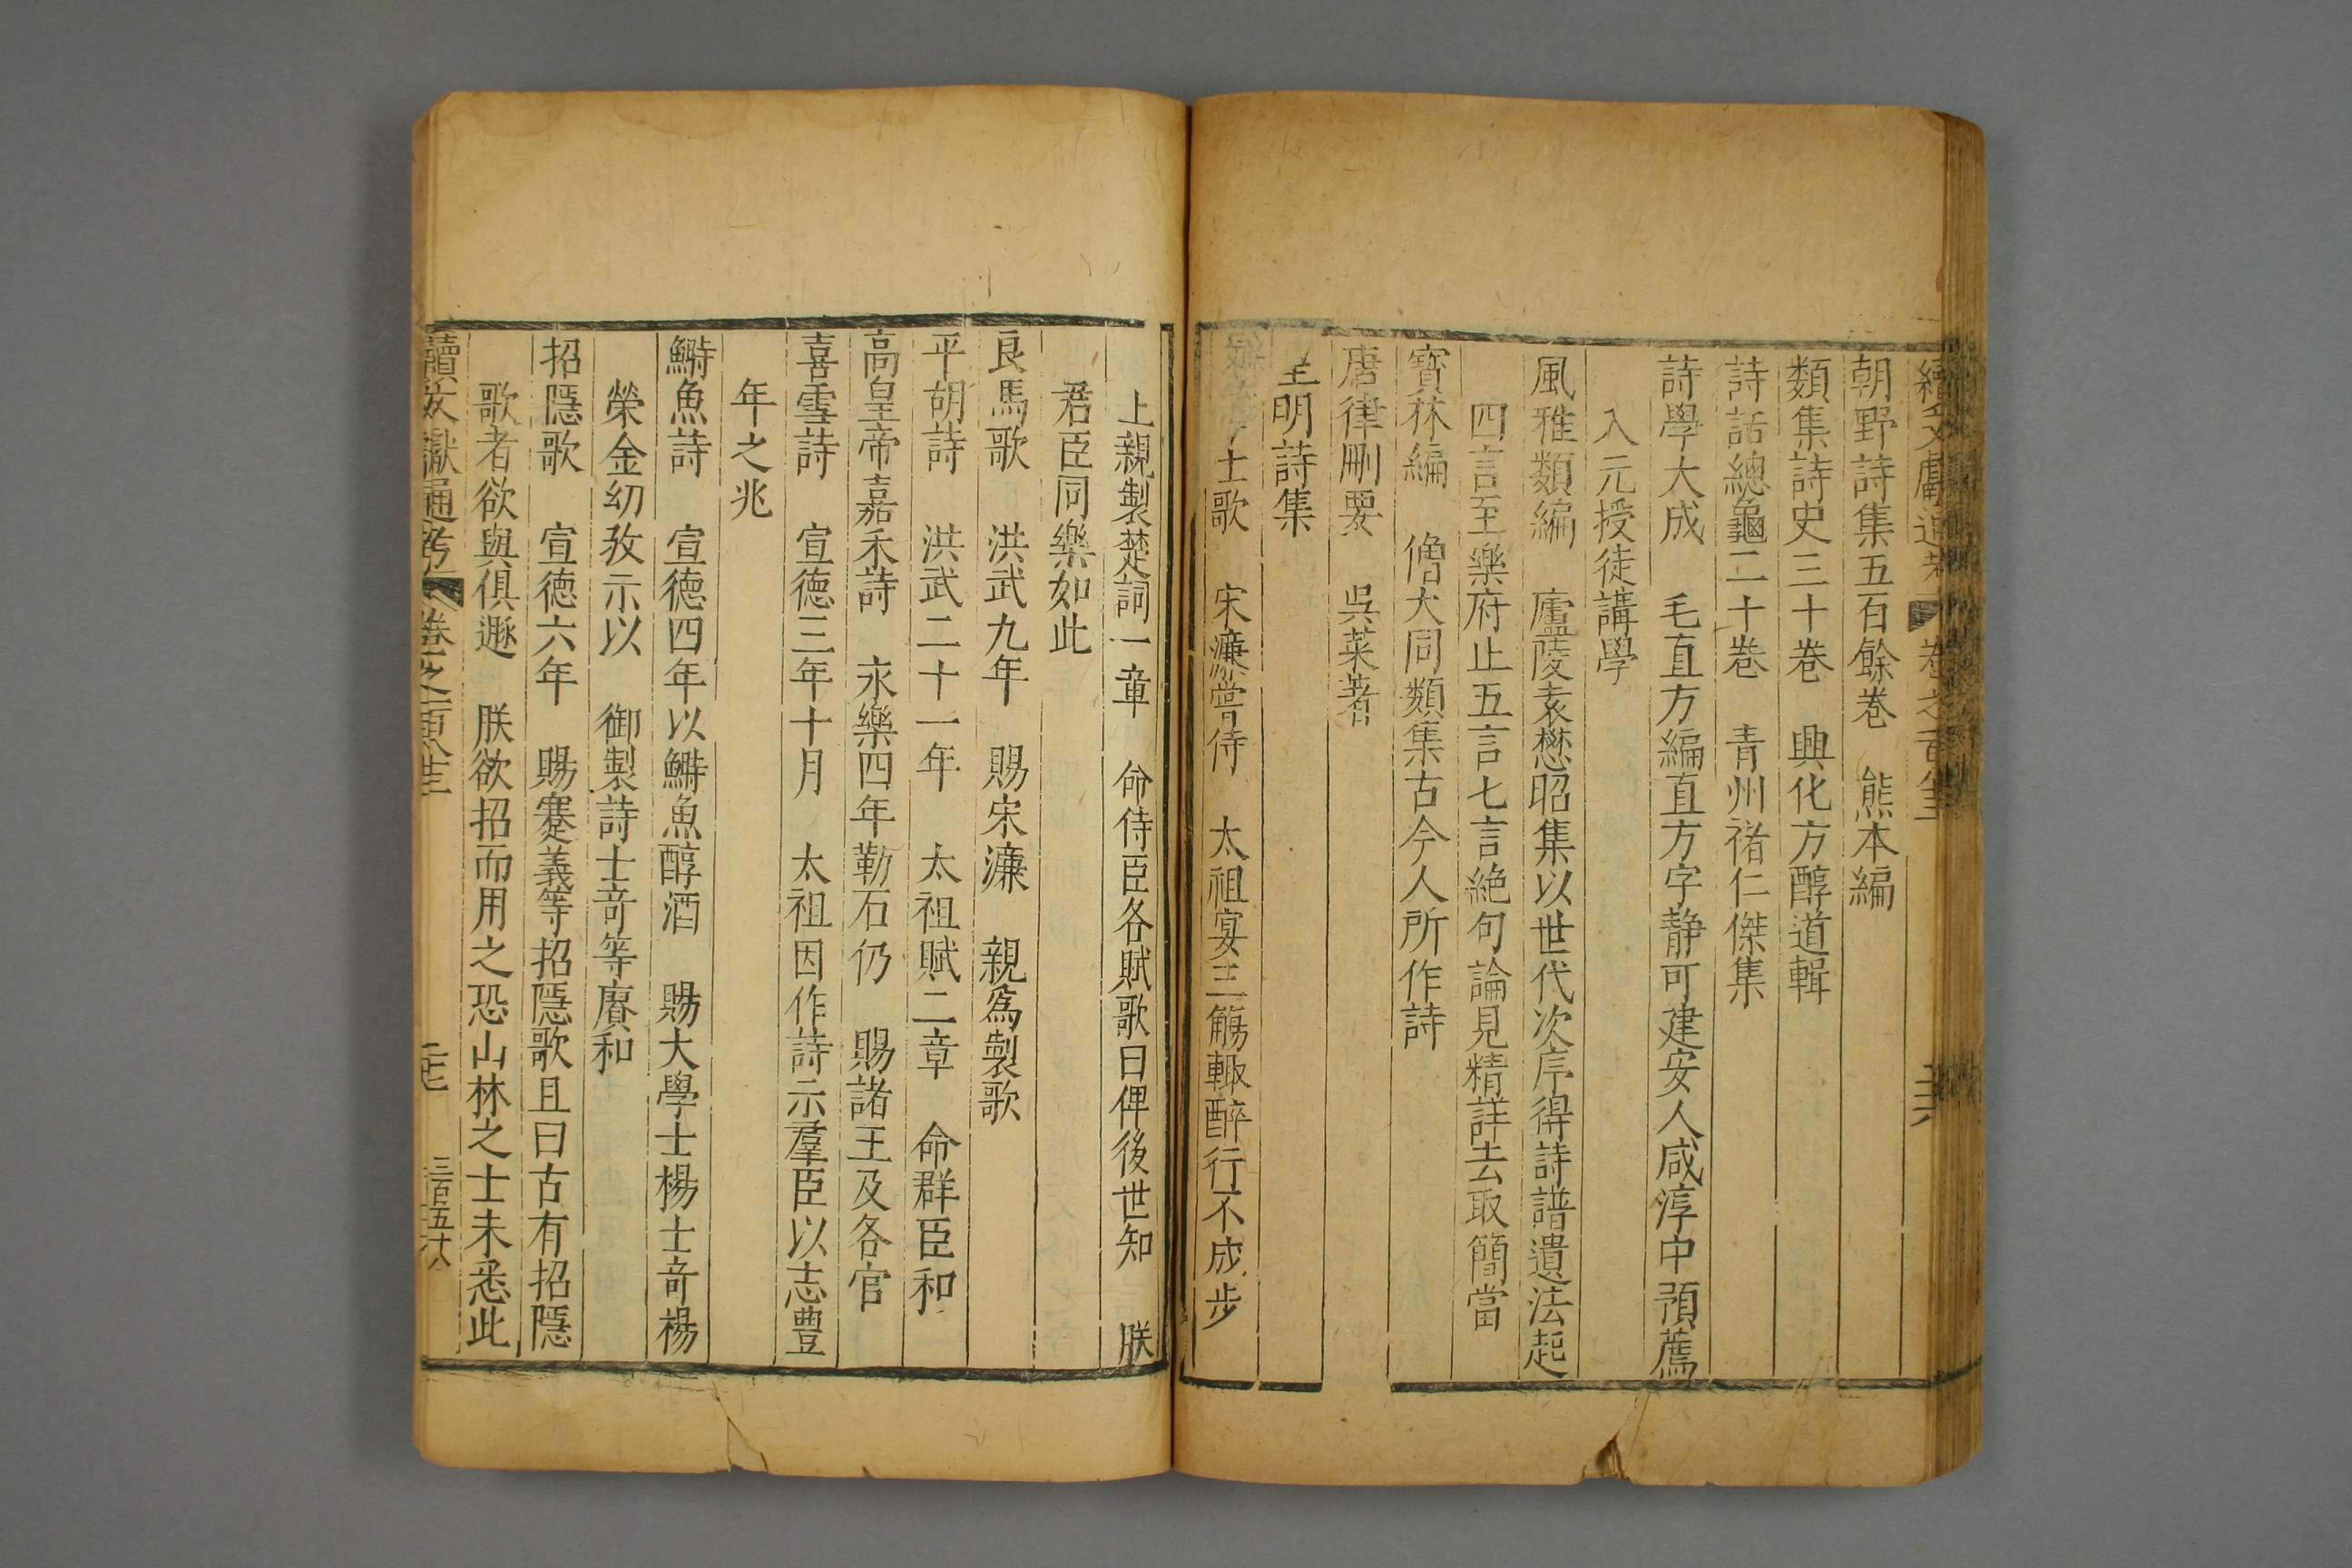 續文獻通考 卷之百
朝野詩集五百餘巻 熊本編
類集詩史三十巻 興化方醇道輯
詩話總龜二十巻 青州褚仁傑集
詩學大成 毛直方編直方字静可建安人咸淳中預薦
入元授徒講學
風雅類編 廬陵袁懋昭集以世代次序得詩譜遺法起
四言至樂府止五言七言絶句論見精詳去取簡當
寳林編 僧大同類集古今人所作詩
唐律刪要 吳萊著
明詩集
士歌 宋濂嘗侍 太祖宴三觴輙醉行不成步
上親製楚詞一章 命侍臣各賦歌曰俾後世知 朕
君臣同樂如此
良馬歌 洪武九年 賜宋濂 親爲製歌
平胡詩 洪武二十一年 太祖賦二章 命群臣和
高皇帝嘉禾詩 永樂四年勒石仍 賜諸王及各官
喜雪詩 宣德三年十月 太祖因作詩示羣臣以志豊
年之兆
鰣魚詩 宣德四年以鰣魚醇酒 賜大學士楊士竒楊
榮金幼孜示以 御製詩士竒等賡和
招隱歌 宣德六年 賜蹇義等招隱歌且曰古有招隱
歌者欲與俱遯 朕欲招而用之恐山林之士未悉此
續文獻通考 卷之百 三百五十八